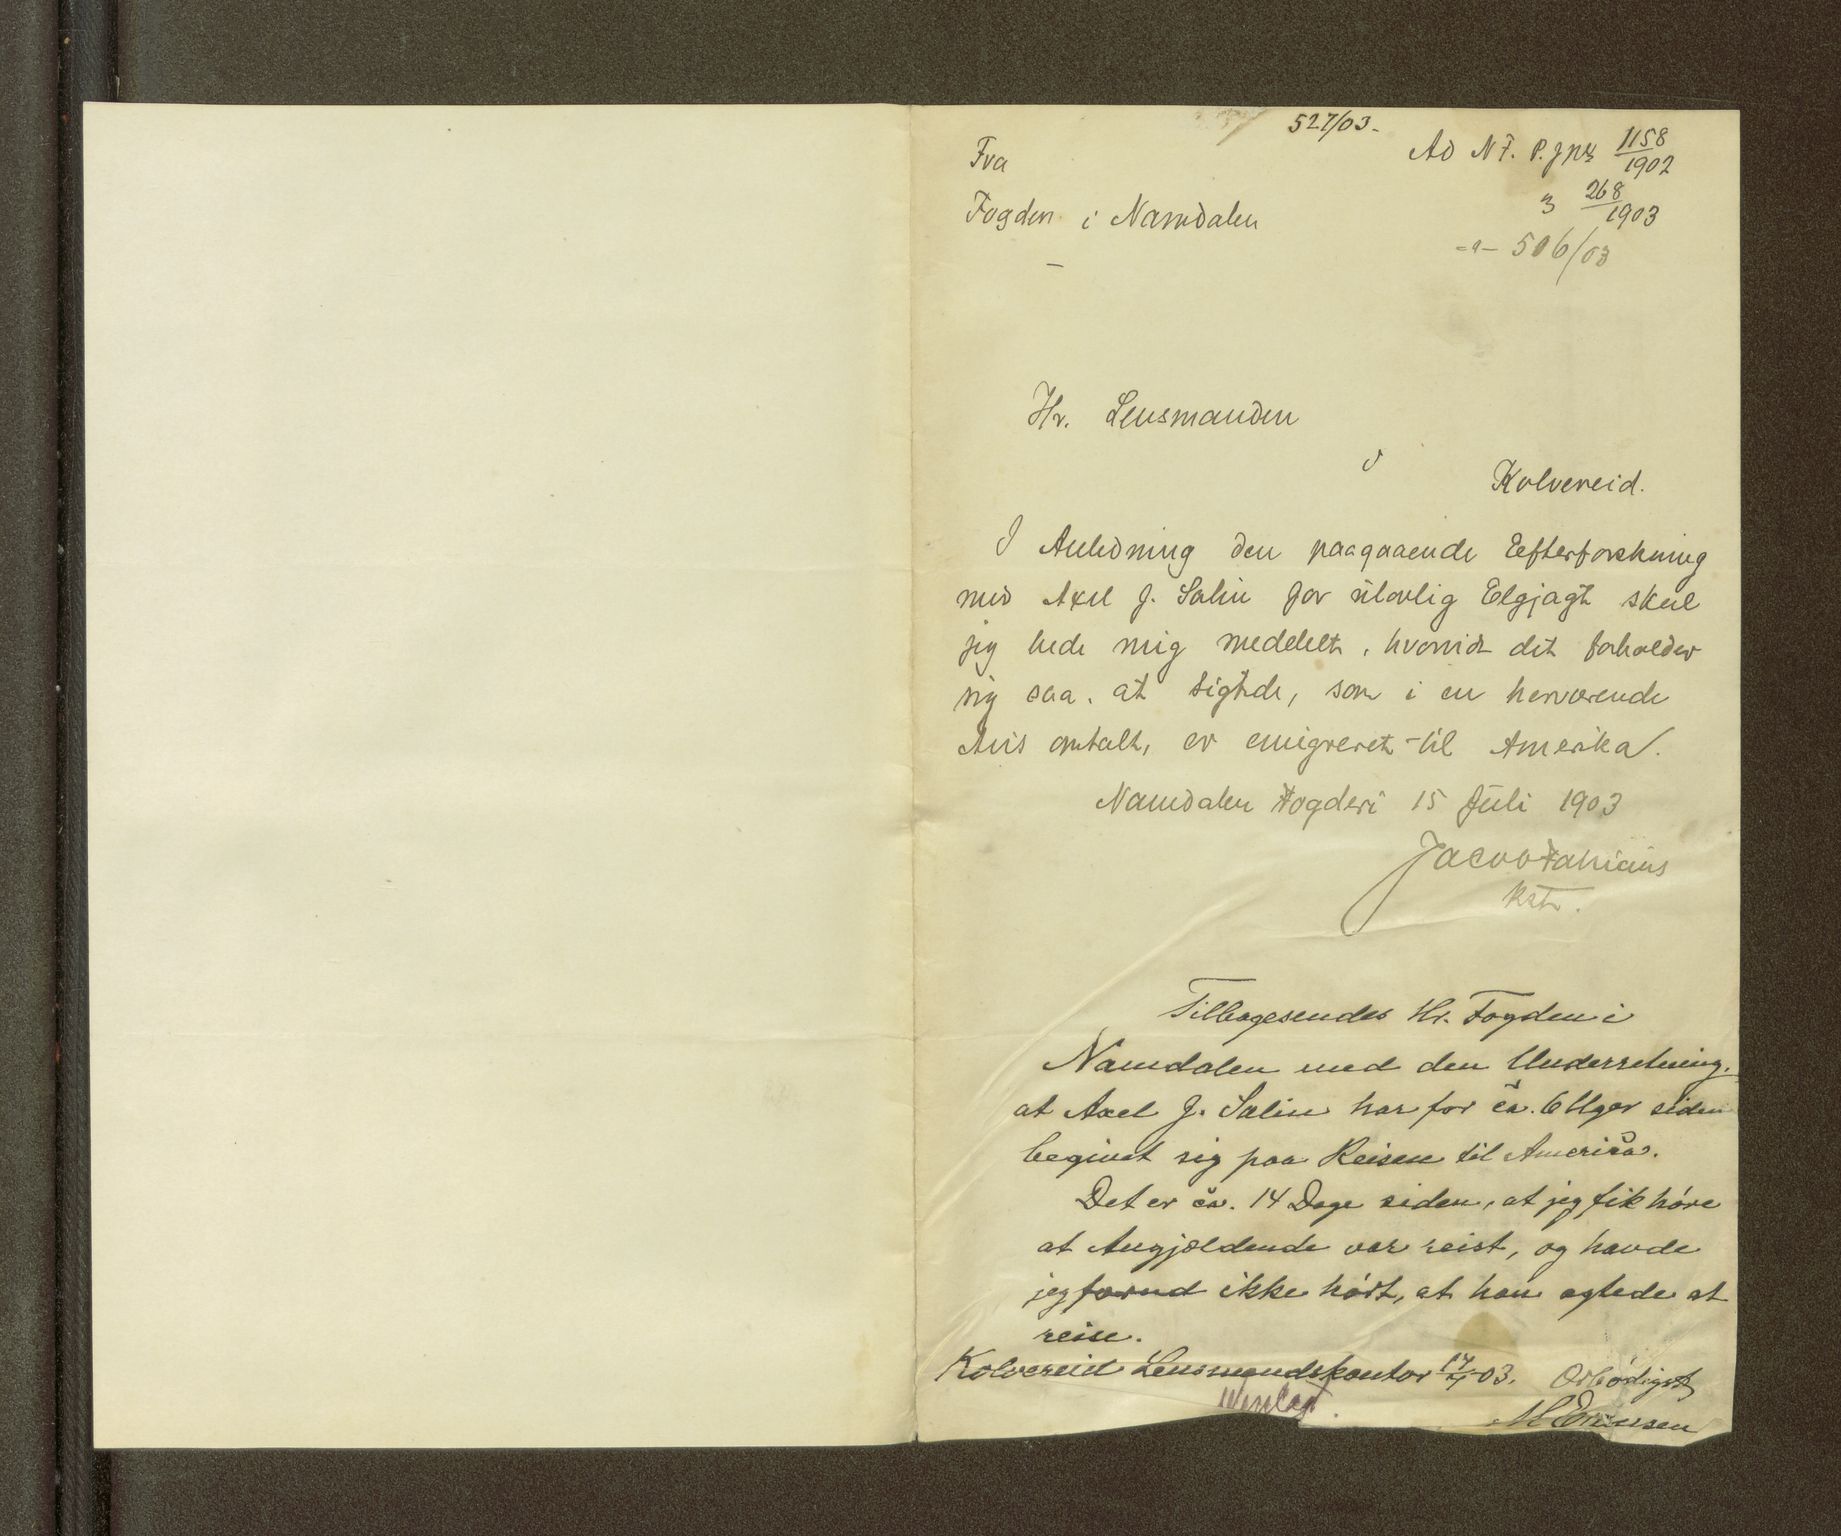 527/03.
Fra
Ad N F. P. Jn 1158/1902
268/1903
Fogden i Namdalen
-"- 506/03
Hr. Lensmanden
i
Kolvereid.
I Anledning den paagaaende Eefterforskning
mod Axel J. Salin for ulovlig Elgjagt skal
jeg bede mig meddelt, hvorvidt det forholder
sig saa, at sigtede, som i en herværende
Avis omtalt, er emigreret til Amerika.
Namdalen Fogderi 15 Juli 1903
Jacob Fabricius
kst.
Tilbagesendes Hr. Fogden i
Namdalen med den Underretning,
at Axel J. Salin har for ca. 6 Uger siden
begivet sig paa Reisen til Amerika.
Det er ca. 14 Dage siden, at jeg fik høre
at Angjældende var reist, og havde
jeg forud ikke hørt, at han agtede at
reise.
Kolvereid Lensmandskontor 17/7 03. Ærbødigst